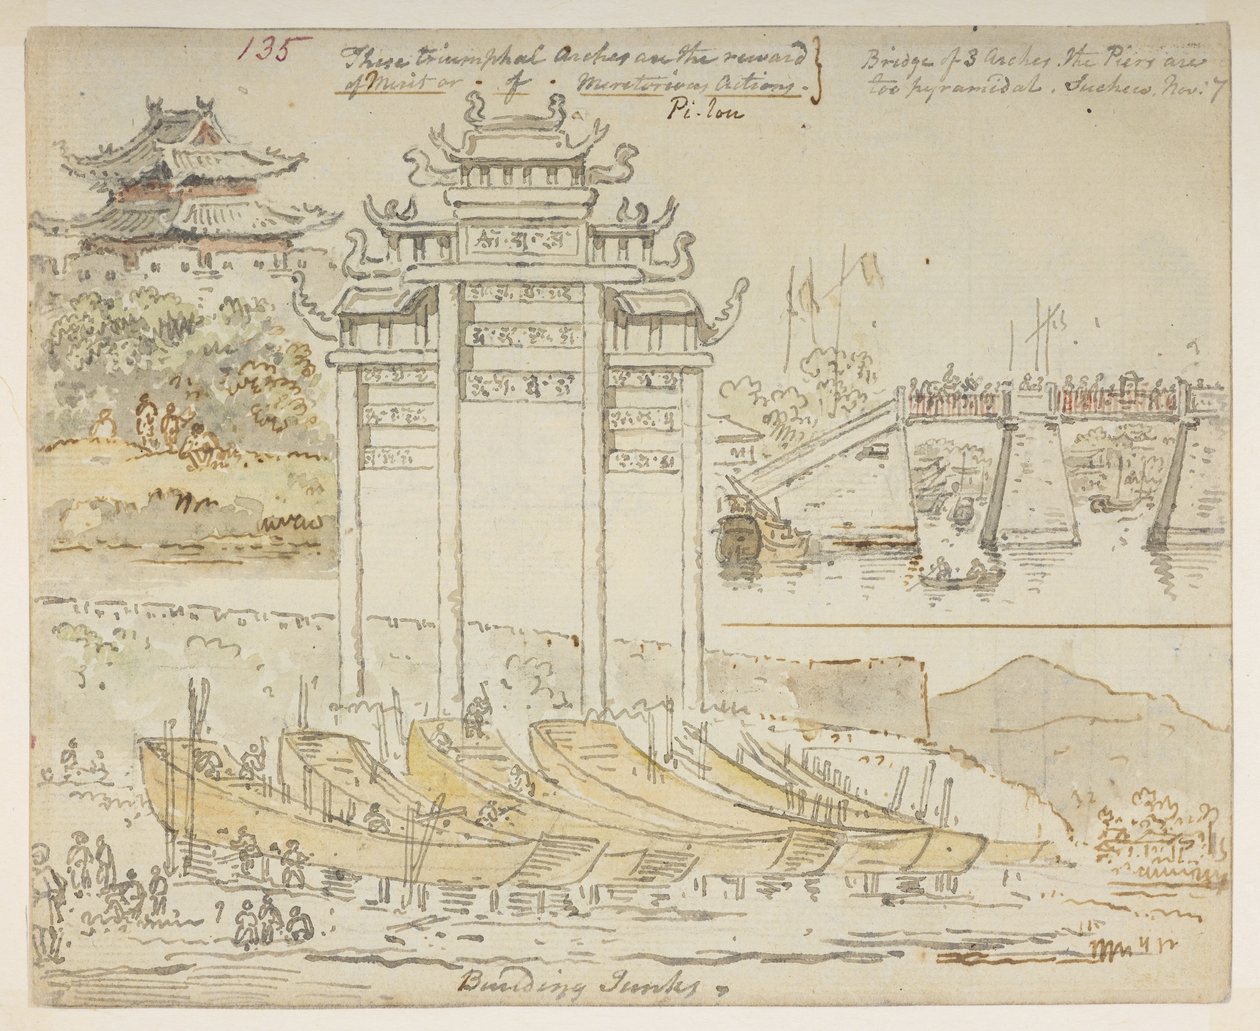 135
These triumphal Arches are the reward
of Merit or of Meretorious Actions.
Pi-lou
Bridge of 3 Arches. the Piers are
too pyramidal. Suchew. Nov: 7
Building Junks.